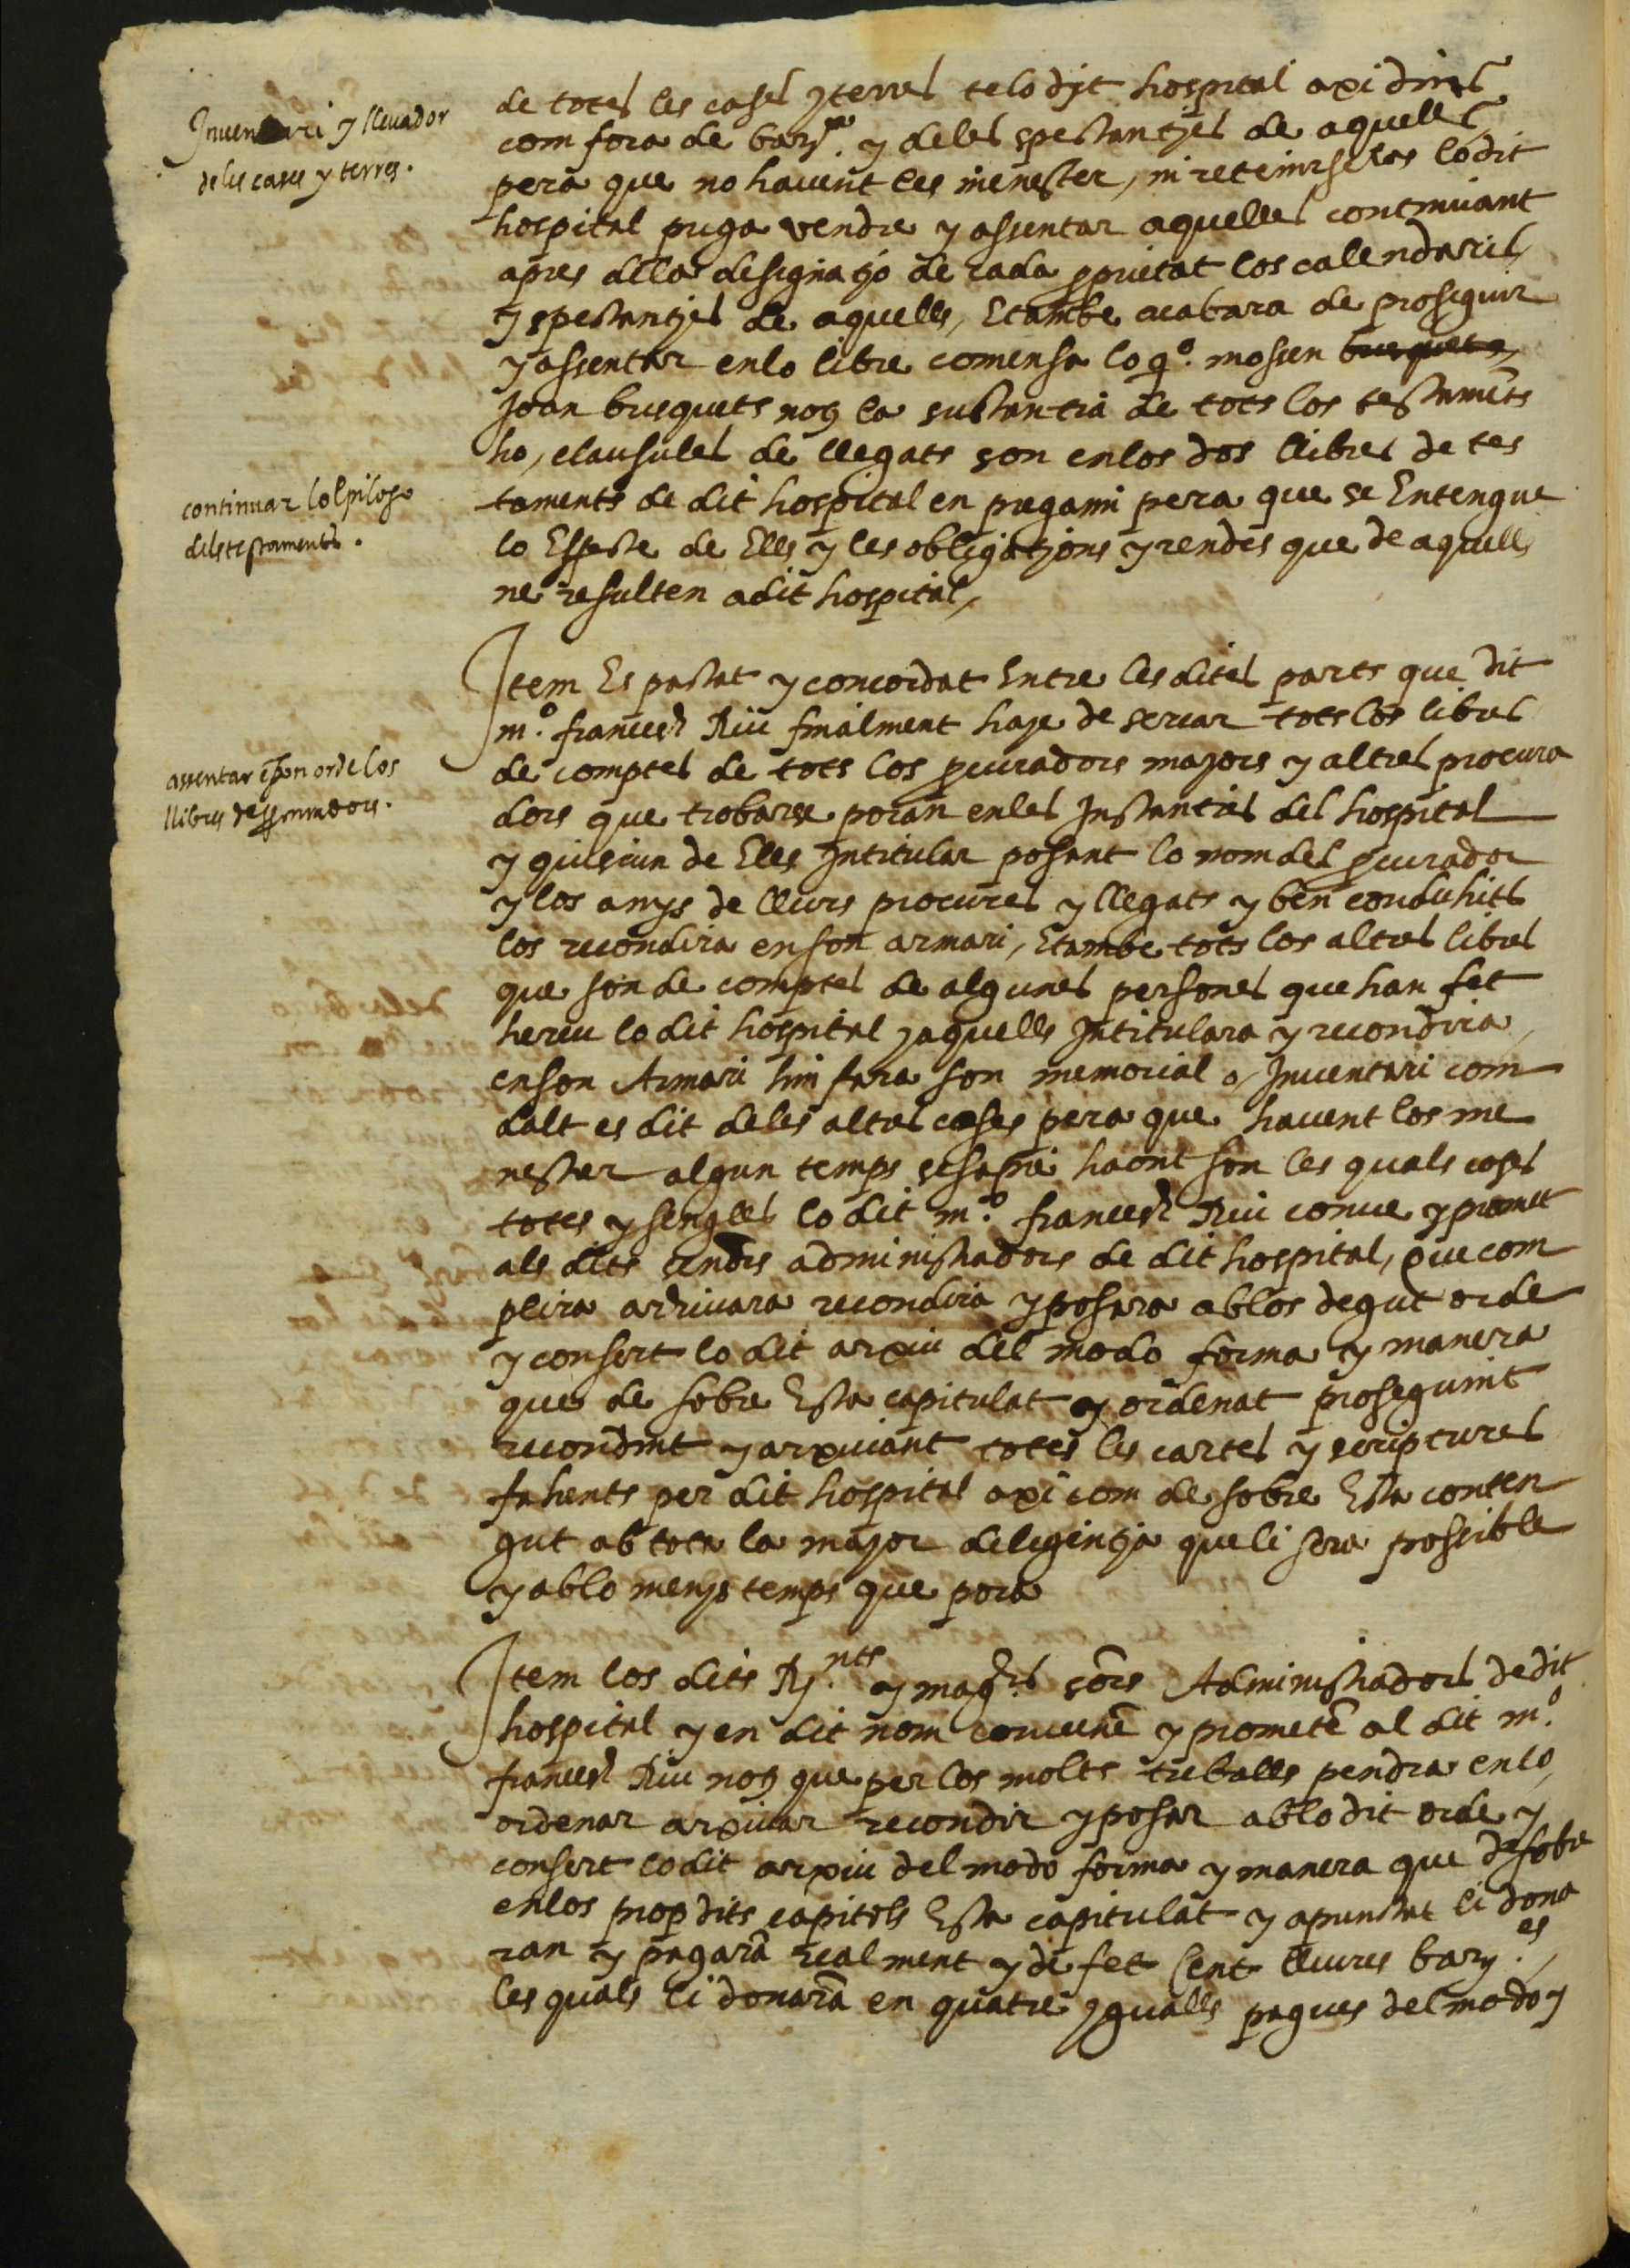 Inventari y llevador
de les cases y terres.
de totes les cases y terres te lo dit hospital axi dins
com fora de bar.na y de les spectanties de aquelles
pera que no havent les menester, ni retenirseles lo dit
hospital puga vendre y assentar aquelles continuant
apres de la designatio de cada proprietat los calendaris
y spectanties de aquells, Etambe acabara de prosequir
y assentar en lo libre comensa lo qº. mossen busquets
Joan busquets noy la substantia de tots los testaments
ho, clausules de llegats son en los dos llibres de tes
continuar lo
dels testaments.
taments de dit hospital en pregami pera que se Entengue
lo Effecte de Ells y les obligations y rendes que de aquells
ne resulten a dit hospital,
Item Es pactat y concordat Entre les dites parts que dit
m.º francesch Riu finalment haje de sercar tots los libres
assentar en son orde los
llibres de procuradors.
de comptes de tots los procuradors majors y altres procura
dors que trobarse poran en les Instanties del hospital
y quiscun de Elles Intitular posant lo nom del procurador
y los anys de llurs procures y llegats y ben conduhits
los recondira en son armari, Etambe tots los altres libres
que son de comptes de algunes persones que han fet
hereu lo dit hospital y aquells Intitulara y recondira
en son Armari hin fara son memorial o Inventari com
dalt es dit de les altres coses pera que havent los me
nester algun temps se sapie haont son les quals coses
totes y sengles lo dit m.º francesch Riu conve y promet
als dits senors administradors de dit hospital, que com
plira arxivara recondira y posara ab los degut orde
y consert lo dit arxiu del modo forma y manera
que de sobre Esta capitulat y ordenat proseguint
recondint y arxivant totes les cartes y scriptures
fahents per dit hospital axi com de sobre Esta conten
gut ab tota la major deligentia que li sera possible
y ab lo menys temps que pora
Item los dits R.nts y magchs sors Administradors de dit
hospital y en dit nom convenē y prometē al dit m.º
francesch Riu noy que per los molts treballs pendra en lo
ordenar arxivar recondir y posar ab lo dit orde y
consert lo dit arxiu del modo forma y manera que de sobre
en los prop dits capitols Esta capitulat y apunctat li dona
ran y pagarā realment y de fet Cent lliures bar.es,
les quals li donarā en quatre yguals pagues del modo y